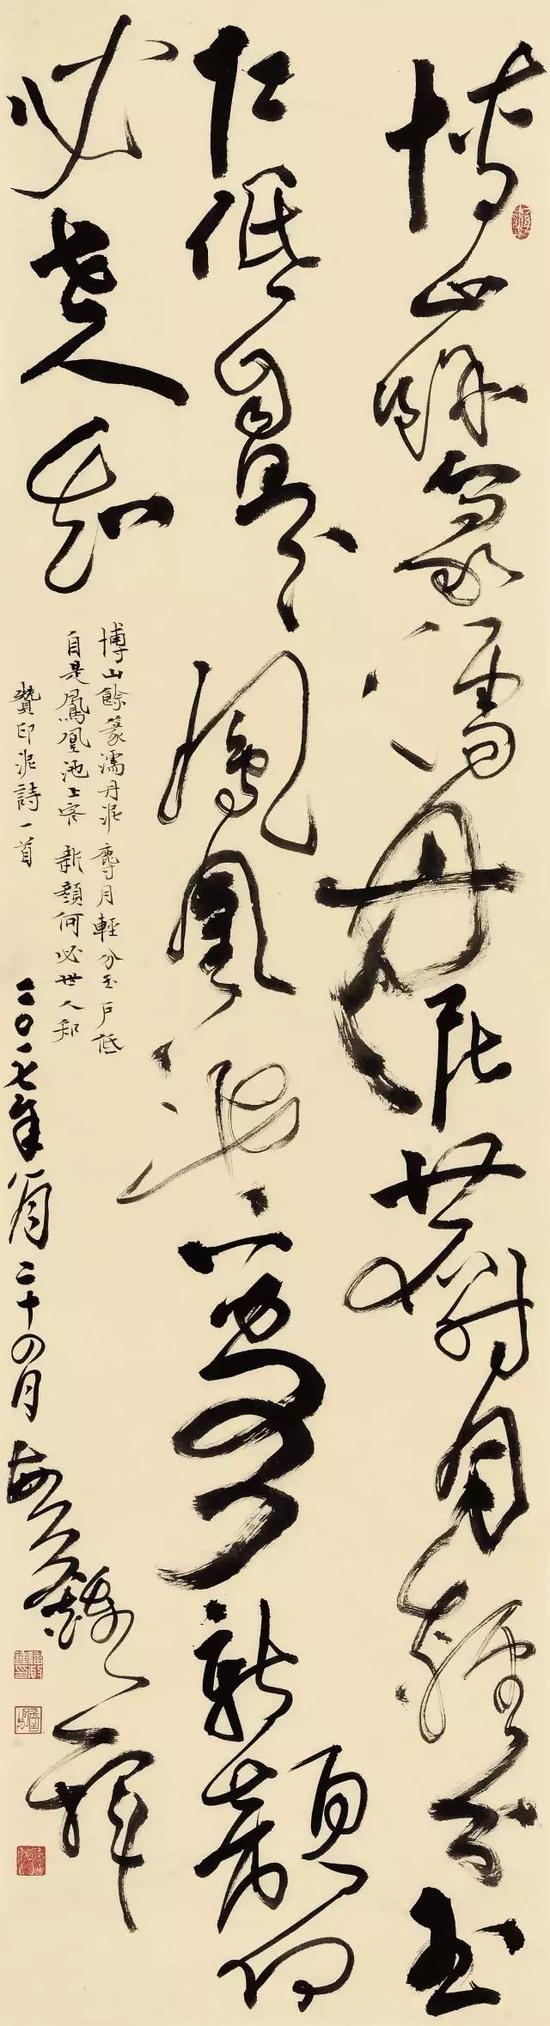 博山餘篆濡丹泥麝月輕分玉
戶低自是鳳凰池上客新顏何
必世人知
博山餘篆濡丹泥 麝月輕分玉戶低
自是鳳凰池上客 新顏何必世人知
贊印泥詩一首
二〇一七年八月二十四日